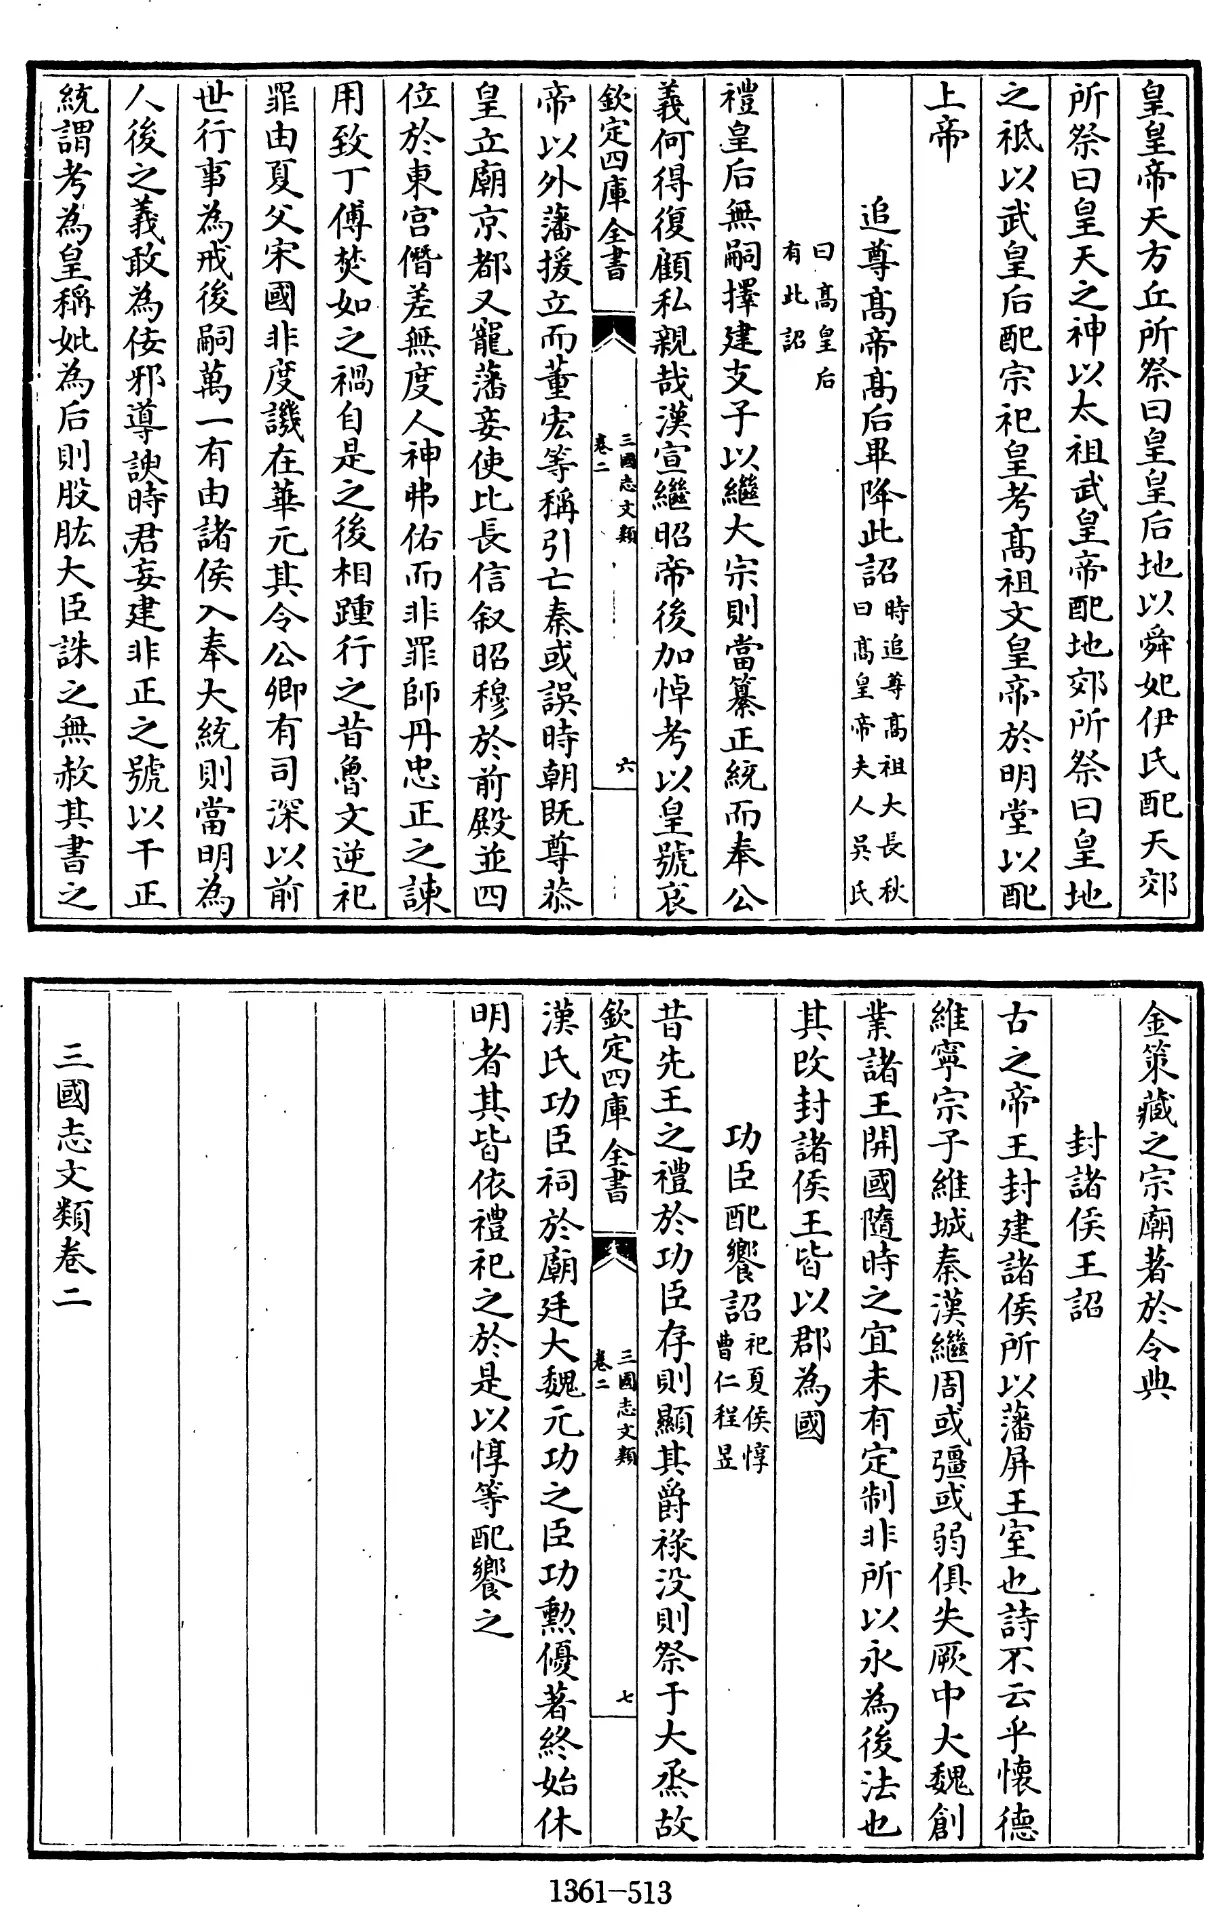 皇皇帝天方丘所祭曰皇皇后地以舜妃伊氏配天郊
所祭曰皇天之神以太祖武皇帝配地郊所祭曰皇地
之祗以武皇后配宗祀皇考髙祖文皇帝於明堂以配
上帝
追尊髙帝髙后畢降此詔時追尊髙祖大長秋
曰髙皇帝夫人吳氏
曰髙皇后
有此詔
禮皇后無嗣擇建支子以繼大宗則當纂正統而奉公
義何得復顧私親哉漢宣繼昭帝後加悼考以皇號哀
欽定四庫全書
三國志文類
卷二
六
帝以外藩援立而董宏等稱引亡秦或誤時朝既尊恭
皇立廟京都又寵藩妾使比長信叙昭穆於前殿並四
位於東宫僭差無度人神弗佑而非罪師丹忠正之諫
用致丁傅焚如之禍自是之後相踵行之昔魯文逆祀
罪由夏父宋國非度譏在華元其令公卿有司深以前
世行事為戒後嗣萬一有由諸侯入奉大統則當明為
人後之義敢為佞邪導諛時君妄建非正之號以干正
統謂考為皇稱妣為后則股肱大臣誅之無赦其書之
金策藏之宗廟著於令典
封諸侯王詔
古之帝王封建諸侯所以藩屏王室也詩不云乎懐德
維寧宗子維城秦漢繼周或彊或弱俱失厥中大魏創
業諸王開國隨時之宜未有定制非所以永為後法也
其改封諸侯王皆以郡為國
功臣配饗詔祀夏侯惇
曹仁程昱
昔先王之禮於功臣存則顯其爵祿没則祭于大烝故
欽定四庫全書
三國志文類
卷二
七
漢氏功臣祠於廟廷大魏元功之臣功勲優著終始休
明者其皆依禮祀之於是以惇等配饗之
三國志文類卷二
1361-513